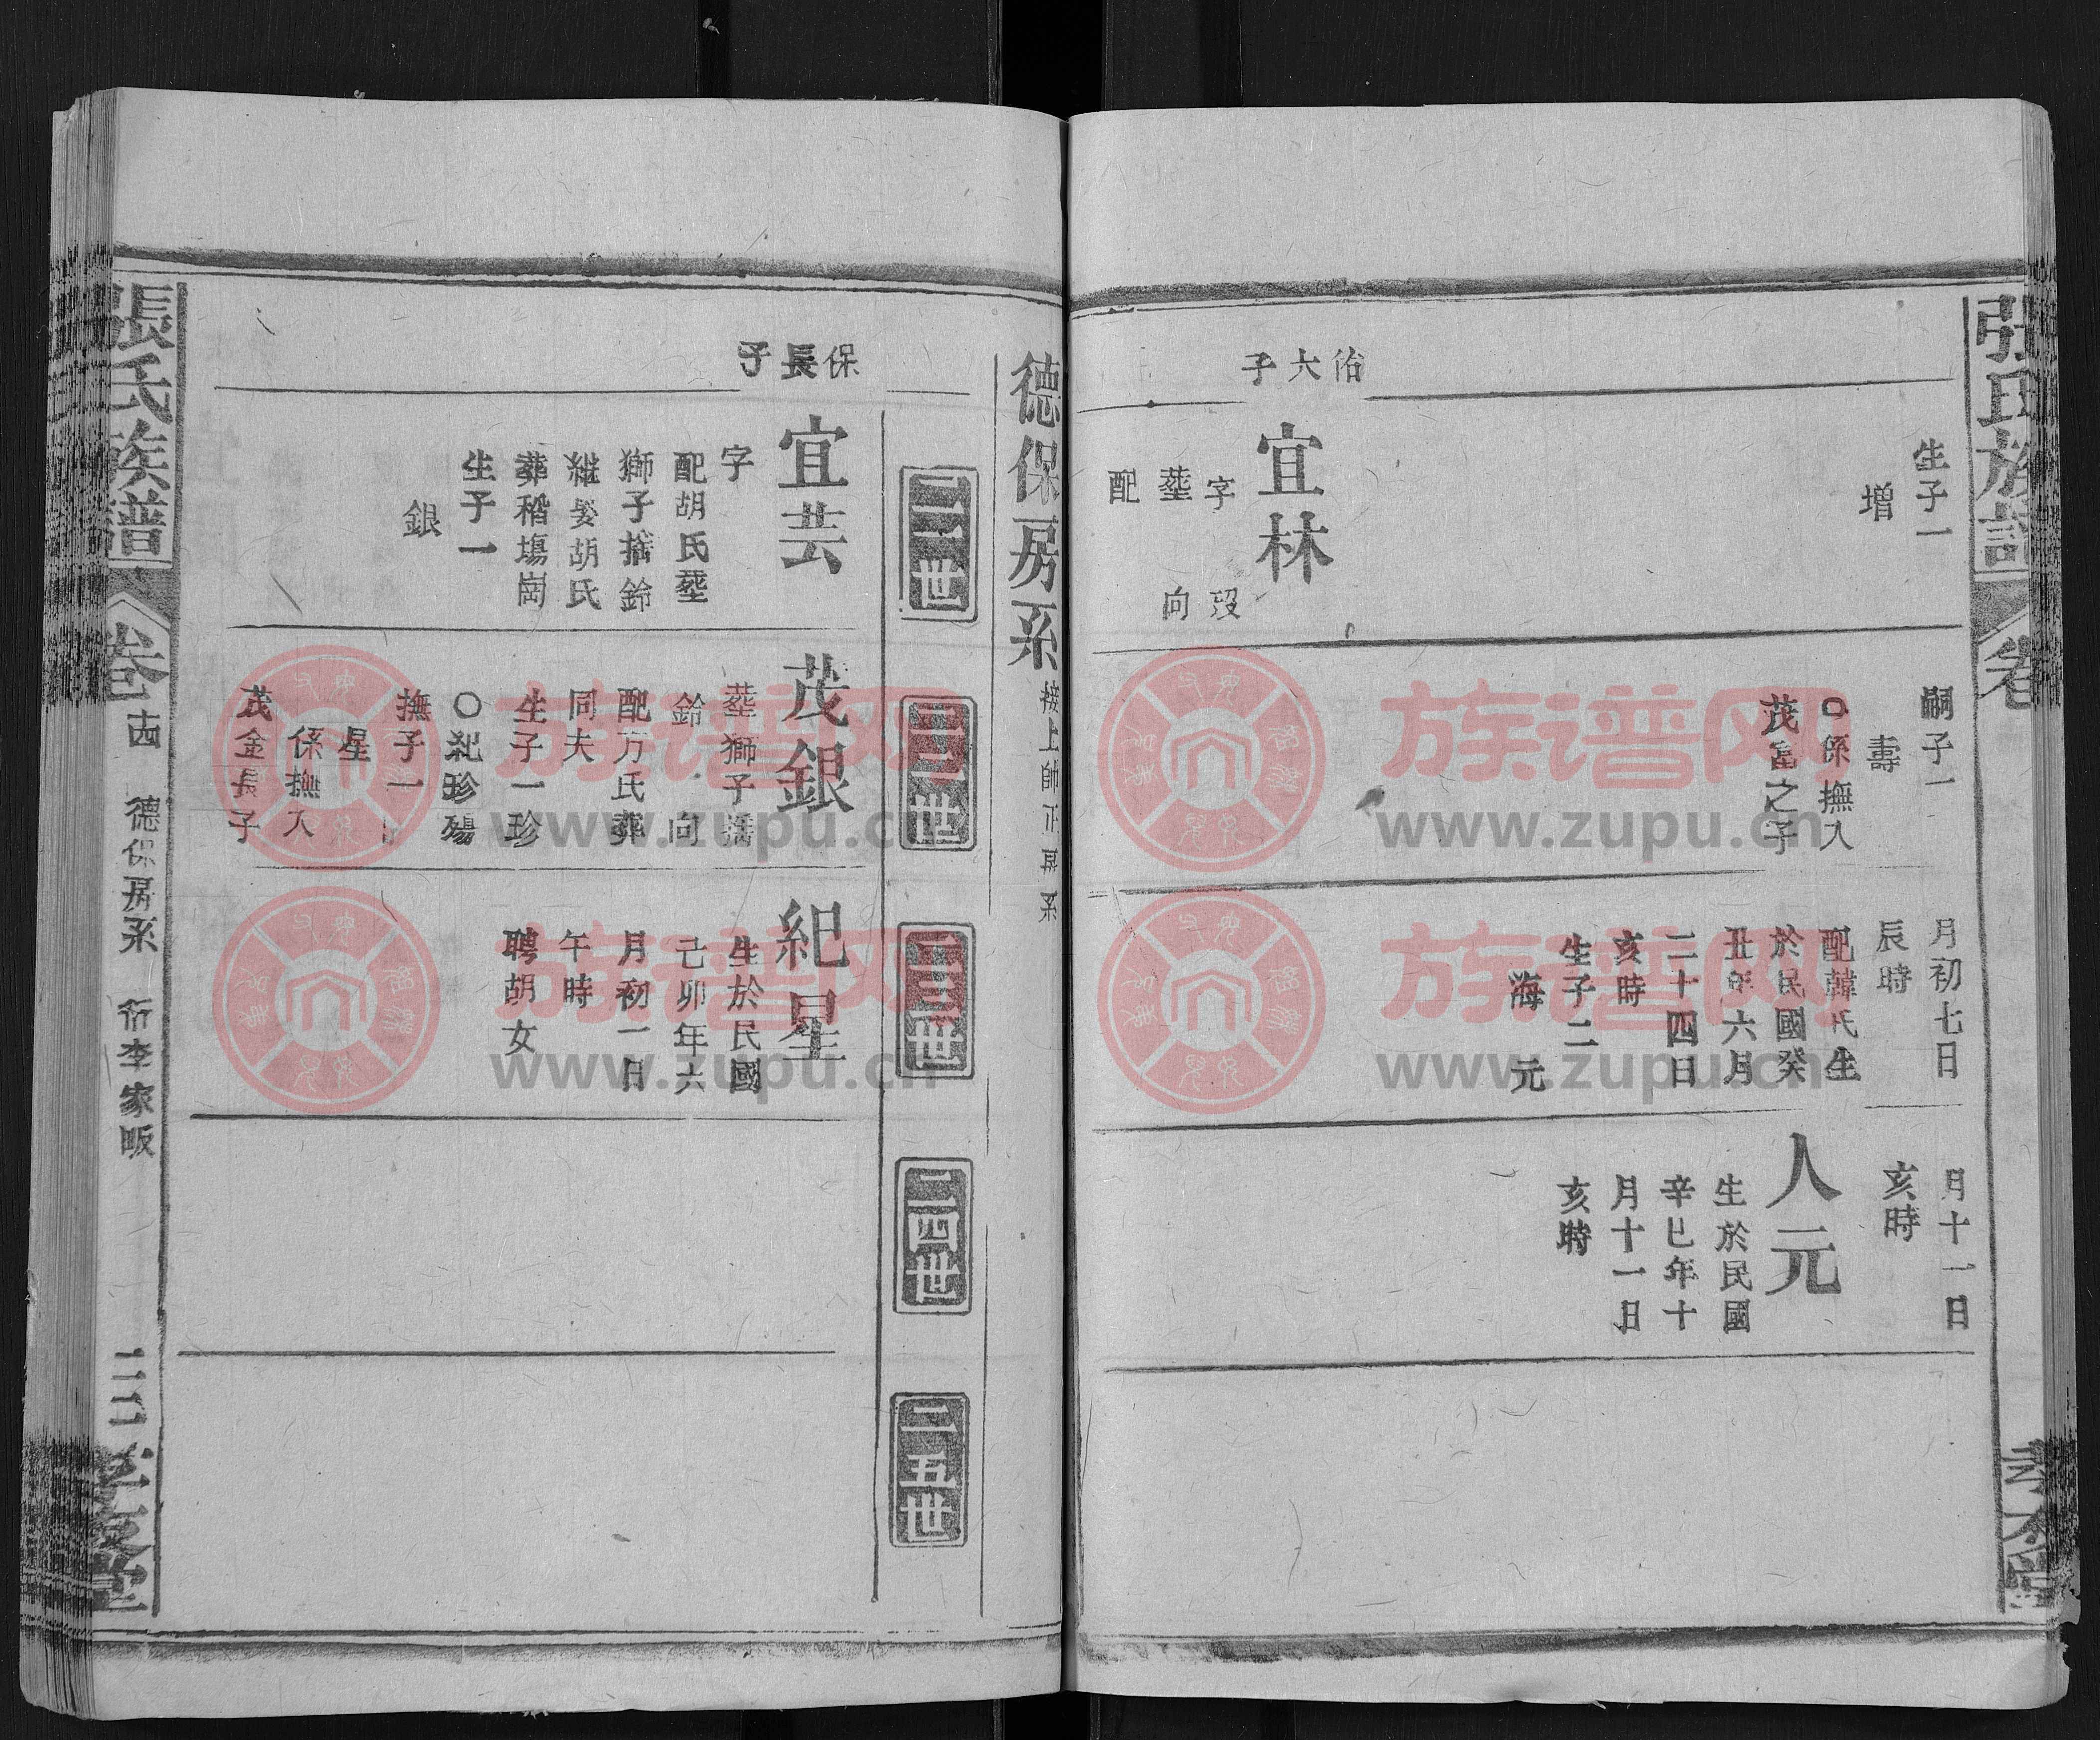 張氏族譜
卷
生子一
增
佑六子
宜林
字
歿
塟
向
配
嗣子一
壽
○係撫入
茂富之子
月初七日
辰時
配韓氏生
於民國癸
丑年六月
二十四日
亥時
生子二
海
元
月十一日
亥時
人元
生於民國
辛巳年十
月十一日
亥時
德保房系
接上帥正房系
二一世
二二世
二三世
二四世
二五世
保長子
宜芸
字
配胡氏塟
獅子搖鈴
繼娶胡氏
葬稻塲崗
生子一
銀
茂銀
塟獅子搖
鈴 向
配万氏葬
同夫
生子一珍
○紀珍殤
撫子一
星
係撫入
茂金長子
紀星
生於民國
己卯年六
月初一日
午時
聘胡女
張氏族譜
卷
德保房系
李家畈
堂
族谱网
www.zupu.cn
族谱网
www.zupu.cn
族谱网
www.zupu.cn
族谱网
www.zupu.cn